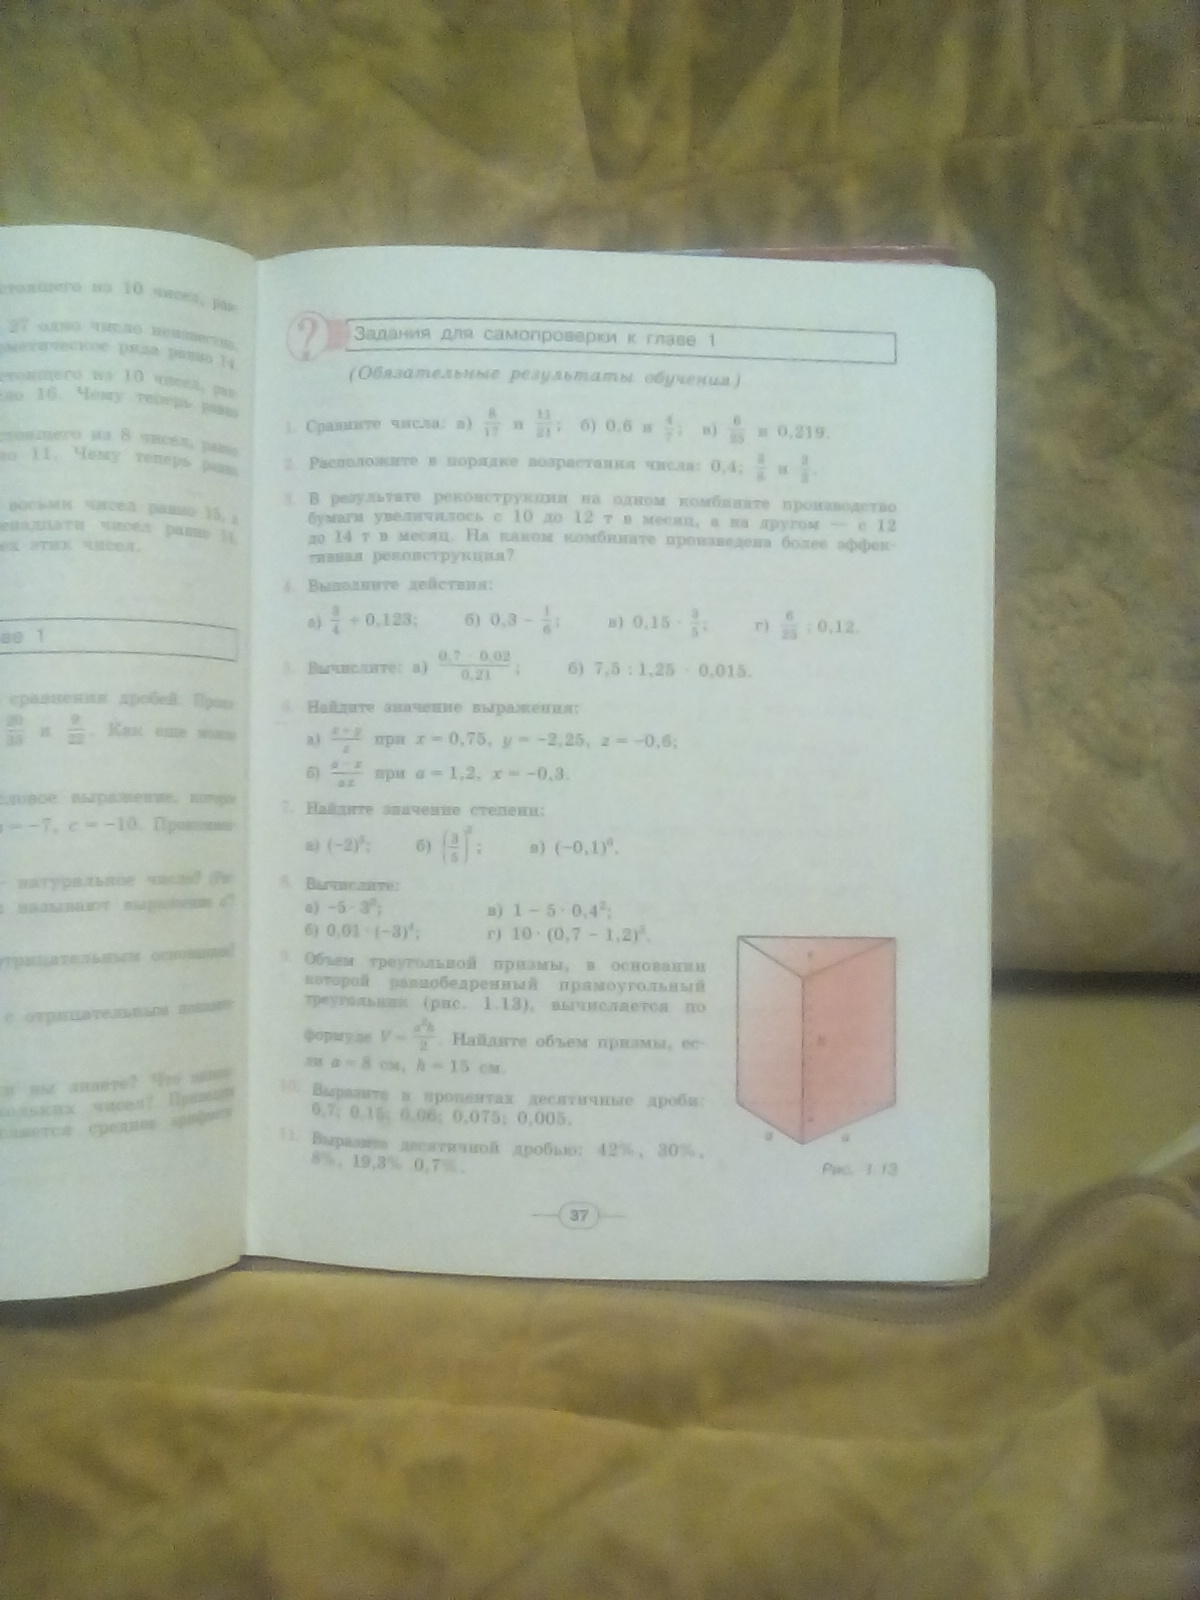 стоящего из 10 чисел, рав-
27 одно число неизвестно.
рметическое ряда равно 14.
стоящего из 10 чисел, рав-
ло 16. Чему теперь равно
стоящего из 8 чисел, равно
ло 11. Чему теперь равно
восьми чисел равно 15, а
енадцати чисел равно
ех этих чисел.
ве 1
сравнения дробей.
и 9/22. Как еще можно
словое выражение,
= -7, c = -10.
натуральное число?
называют выражение
отрицательным основанием
с отрицательным
вы знаете? Что
кольких чисел?
среднее
? Задания для самопроверки к главе 1
(Обязательные результаты обучения)
1. Сравните числа: а) 8/17 и 11/21; б) 0,6 и 4/7; в) 6/25 и 0,219.
2. Расположите в порядке возрастания числа: 0,4; и
3. В результате реконструкции на одном комбинате производство
бумаги увеличилось с 10 до 12 т в месяц, а на другом — с 12
до 14 т в месяц. На каком комбинате произведена более эффек-
тивная реконструкция?
4. Выполните действия:
а) 3/4 + 0,123; б) 0,3 - 1/6; в) 0,15 · 3/5; г) 6/25 : 0,12.
5. Вычислите: а) 0,7 · 0,02/0,21; б) 7,5 : 1,25 · 0,015.
6. Найдите значение выражения:
а) при x = 0,75, y = -2,25, z = -0,6;
б) a - x/ax при a = 1,2, x = -0,3.
7. Найдите значение степени:
а) (-2)⁵; б) (3/5)³; в) (-0,1)⁶.
8. Вычислите:
а) -5 · 3²; в) 1 - 5 · 0,4²;
б) 0,01 · (-3)⁴; г) 10 · (0,7 - 1,2)³.
9. Объем треугольной призмы, в основании
которой равнобедренный прямоугольный
треугольник (рис. 1.13), вычисляется по
формуле V = a²h/2. Найдите объем призмы, ес-
ли a = 8 см, h = 15 см.
10. Выразите в процентах десятичные дроби:
0,7; 0,15; 0,06; 0,075; 0,005.
11. Выразите десятичной дробью: 42%, 30%,
8%, 19,3% 0,7%.
h
a a
Рис. 1.13
37